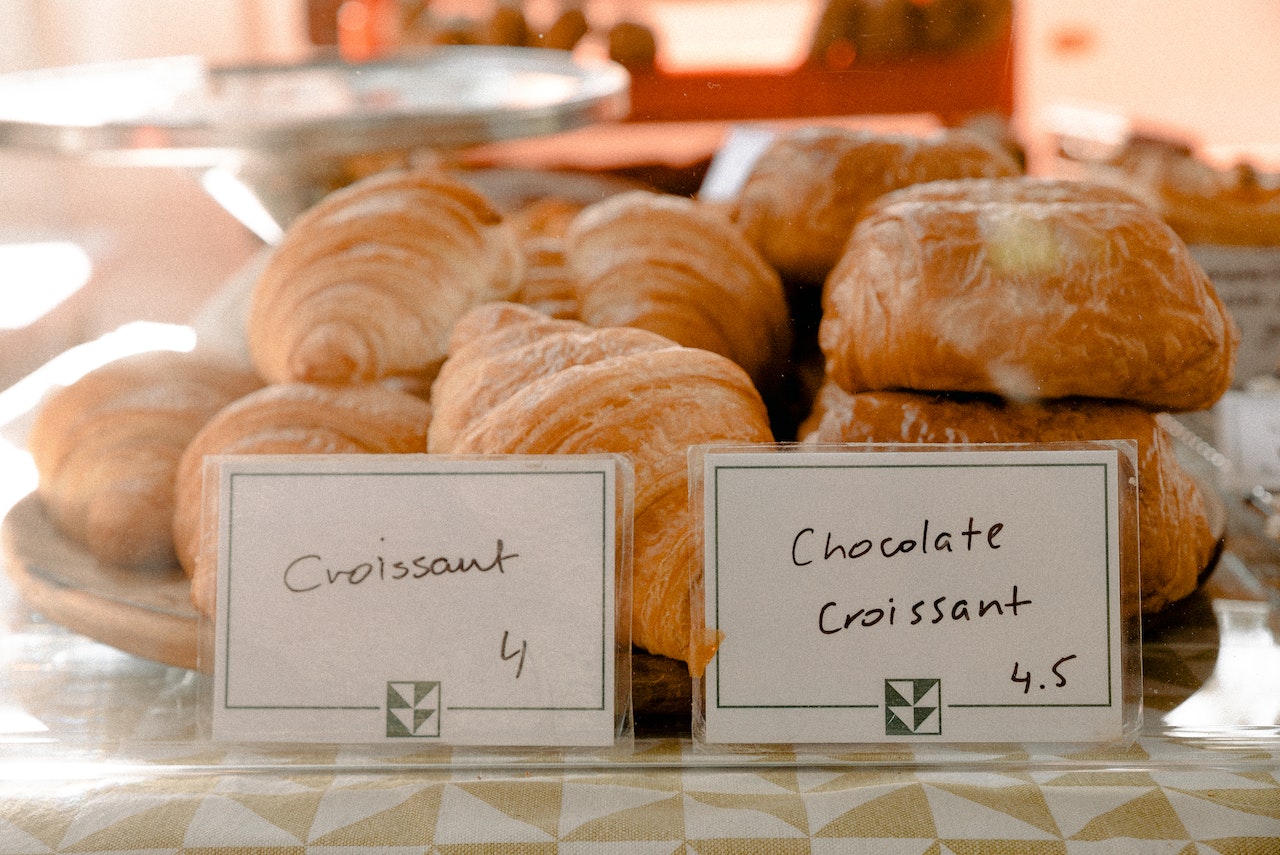 Croissant
4
Chocolate
Croissant
4.5